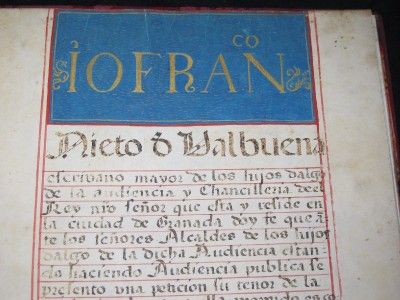 IOFRANCO
Nieto ð Valbuena
escrivano mayor de los hijos dalgo
de la audiencia y Chancilleria del
Rey nro señor que esta y reside en
la ciudad de Granada doy fe que ā
te los señores Alcaldes de los hijos
dalgo de la dicha Audiencia estan
do haciendo Audiencia publica se
presento una peticion su tenor de la